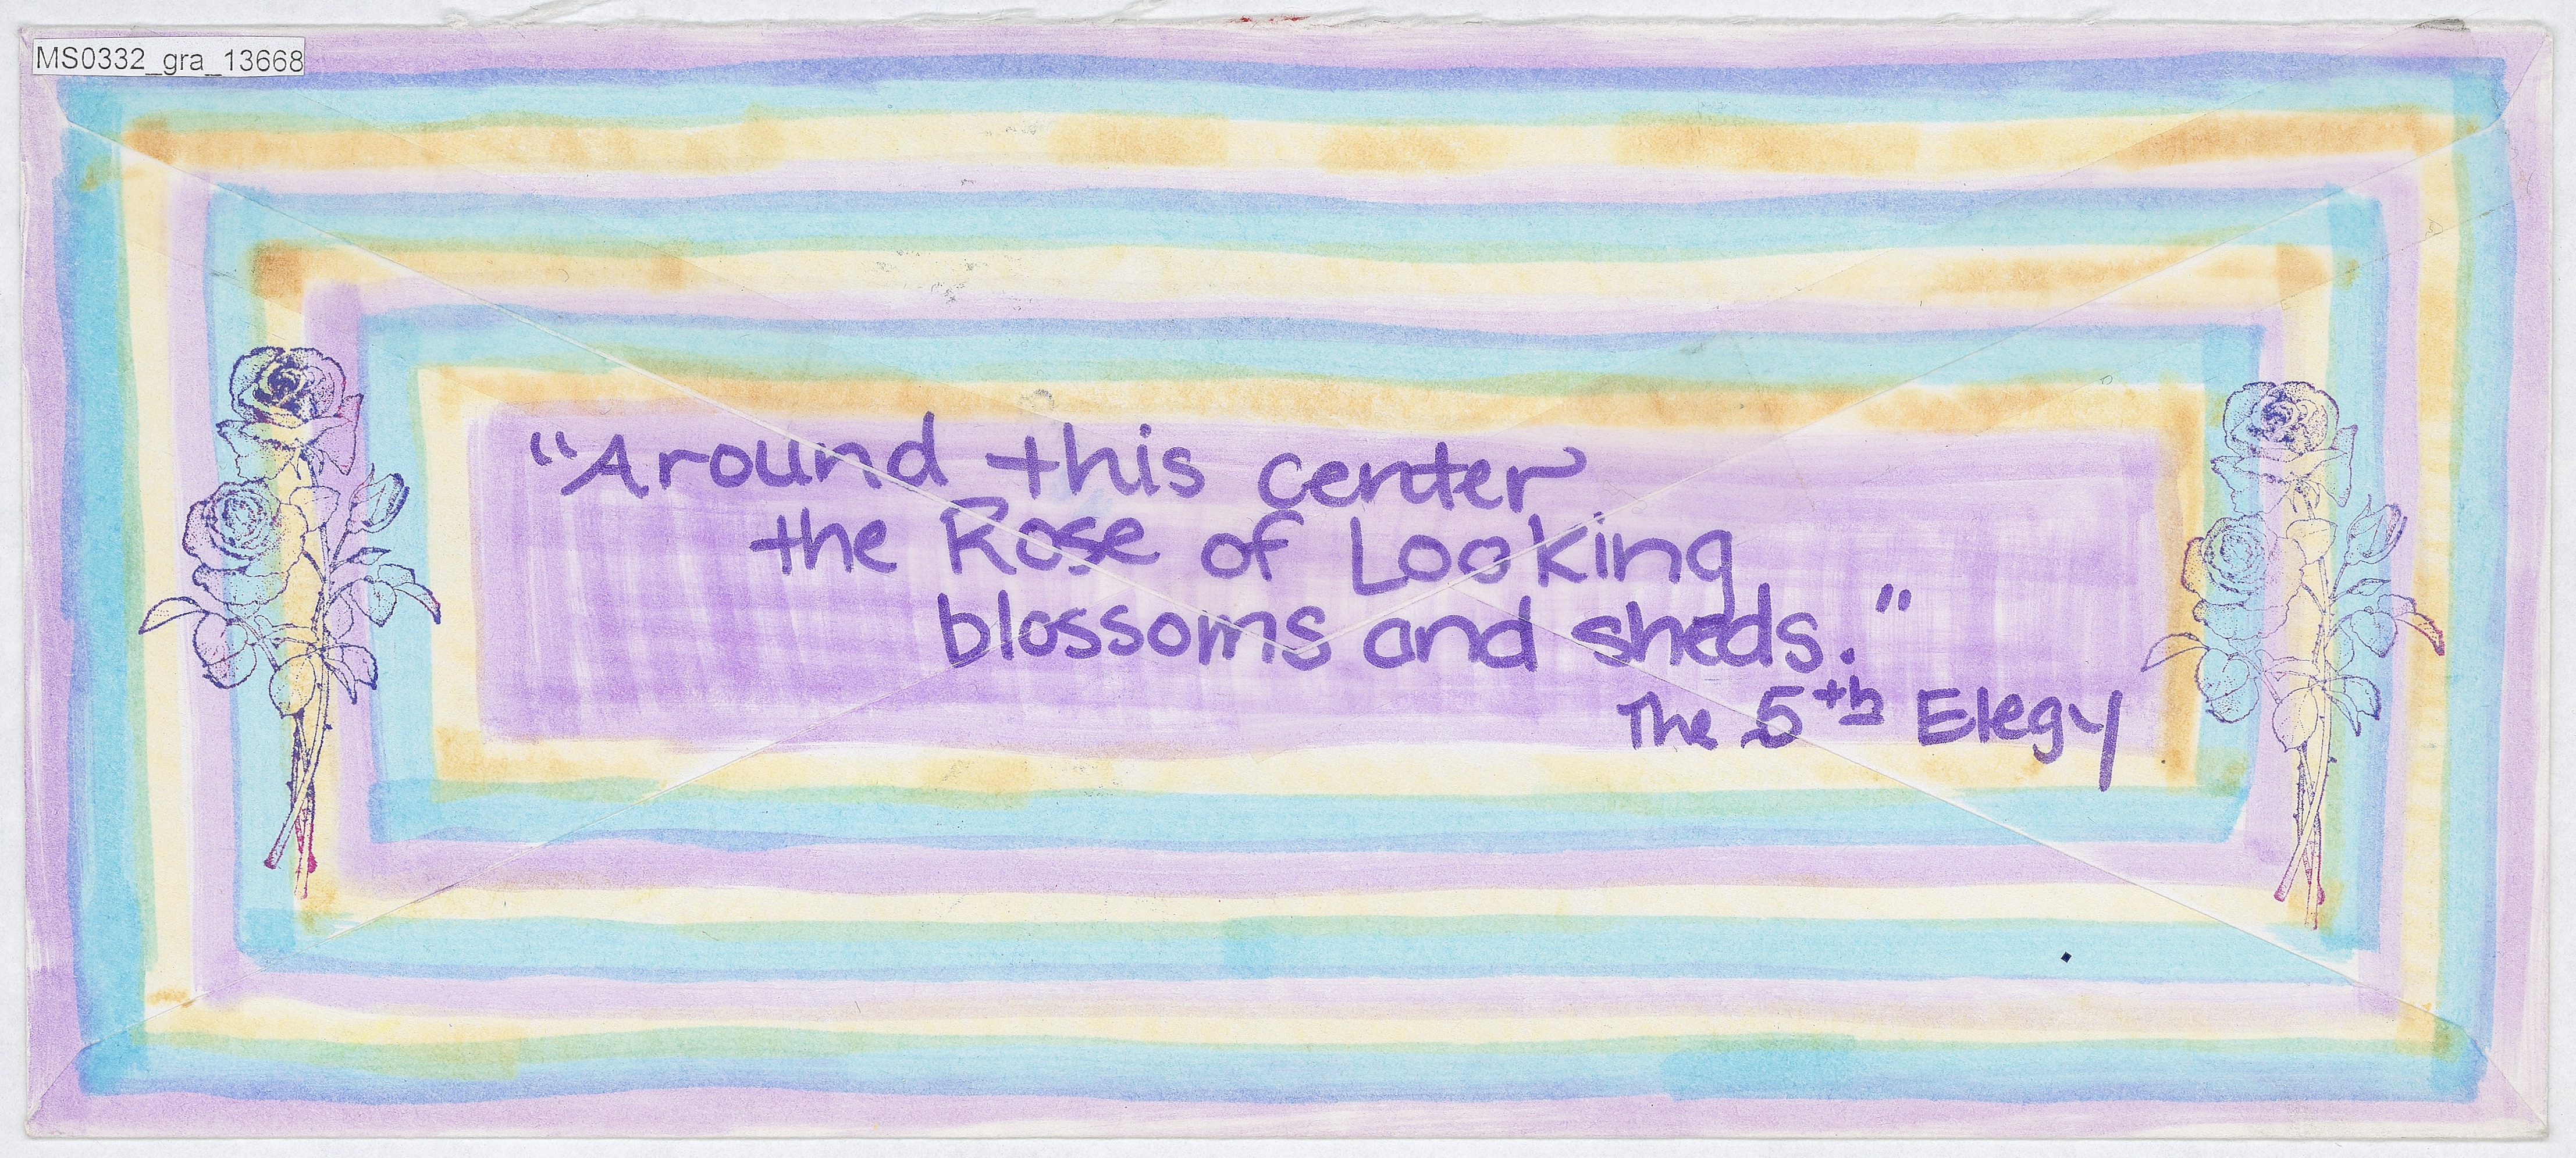 MS0332_gra_13668
"Around this center
the Rose of Looking
blossoms and sheds."
The 5th Elegy